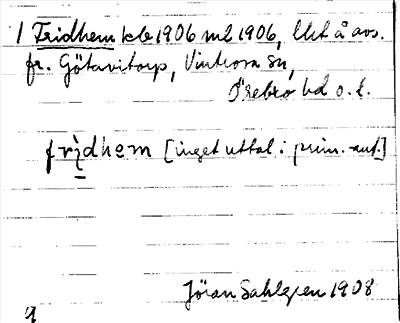 1 Fridhem kb 1906 ml 1906, lht å avs.
fr. Götavitorp, Vintrosa sn,
Örebro hd o. l.
fridhem [inget uttal i prim.-ant.]
Jöran Sahlgren 1908